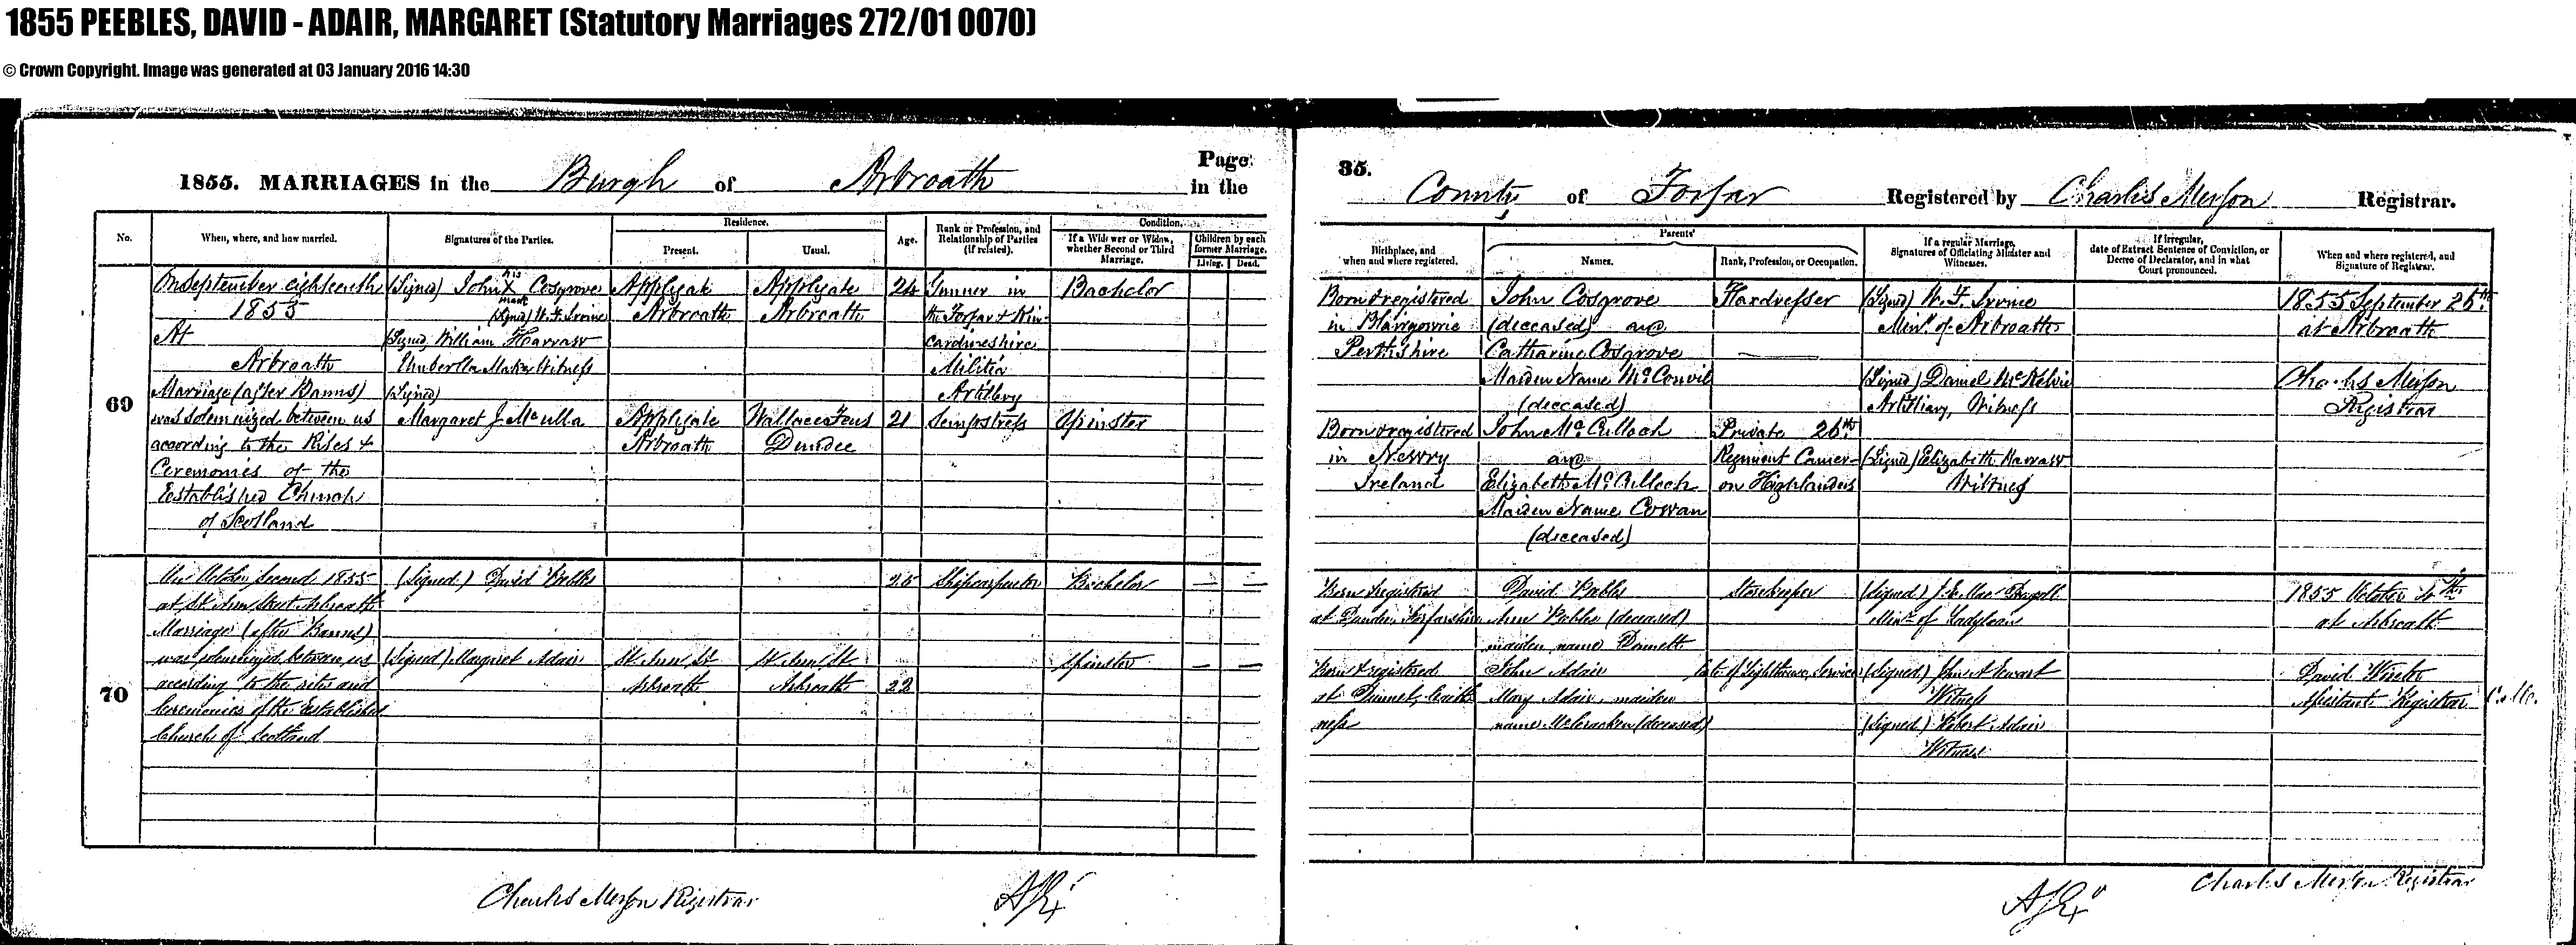 1855 PEEBLES, DAVID - ADAIR, MARGARET (Statutory Marriages 272/01 0070)
© Crown Copyright. Image was generated at 03 January 2016 14:30
1855. MARRIAGES in the Burgh of Arbroath Page in the
35.
County of Forfar Registered by Charles Merson Registrar.
No.
When, where, and how married.
Signatures of the Parties.
Residence.
Present.
Usual.
Age.
Rank or Profession, and
Relationship of Parties
(if related).
Condition.
If a Widower or Widow,
whether Second or Third
Marriage.
Children by each
former Marriage.
Living. Dead.
Birthplace, and
when and where registered.
Parents'
Names.
Rank, Profession, or Occupation.
If a regular Marriage,
Signatures of Officiating Minister and
Witnesses.
If irregular,
date of Extract Sentence of Conviction, or
Decree of Declarator, and in what
Court pronounced.
When and where registered, and
Signature of Registrar.
69
On September eighteenth
1855
At
Arbroath
Marriage (after Banns)
was solemnized between us
according to the Rites &
Ceremonies of the
Established Church
of Scotland
his
(Signed) John X Cosgrove
mark
(Signed) W. F. Irvine
(Signed) William Harrass
Umberella Maker Witness
(Signed)
Margaret J McCulla
Applegate
Arbroath
Applegate
Arbroath
Applegate
Arbroath
Wallace Feus
Dundee
24
21
Gunner in
the Forfar & Kin-
cardineshire
Militia
Artillery
Sempstress
Bachelor
Spinster
Born & registered
in Blairgowrie
Perthshire
Born & registered
in Newry
Ireland
John Cosgrove
(deceased) and
Catharine Cosgrove
Maiden Name McConvil
(deceased)
John McCulloch
and
Elizabeth McCulloch
Maiden Name Cowan
(deceased)
Hairdresser
Private 26th
Regiment Camer-
on Highlanders
(Signed) W. F. Irvine
Minr. of Arbroath
(Signed) Daniel McKelvie
Artilliary, Witness
(Signed) Elizabeth Harrass
Witness
1855 September 25th
at Arbroath
Charles Merson
Registrar
70
On October Second 1855
at St Ann Street Arbroath
Marriage (after Banns)
was solemnized between us
according to the rites and
Ceremonies of the Established
Church of Scotland
(Signed) David Peebles
(Signed) Margaret Adair
St Ann St
Arbroath
St Ann St
Arbroath
25
22
Shipcarpenter
Bachelor
Spinster
Born & registered
at Dundee, Forfarshire
Born & registered
at Dunnet, Caith
ness
David Peebles
Ann Peebles (deceased)
maiden name
John Adair
Mary Adair, maiden
name McCracken (deceased)
Storekeeper
Late of Lighthouse Service
(Signed) Mac Dougall
Minr. of Ladyloan
(Signed) Stewart
Witness
(Signed) Robert Adair
Witness
1855 October 4th
at Arbroath
David
Assistant Registrar
Charles Merson Registrar
Charles Merson Registrar